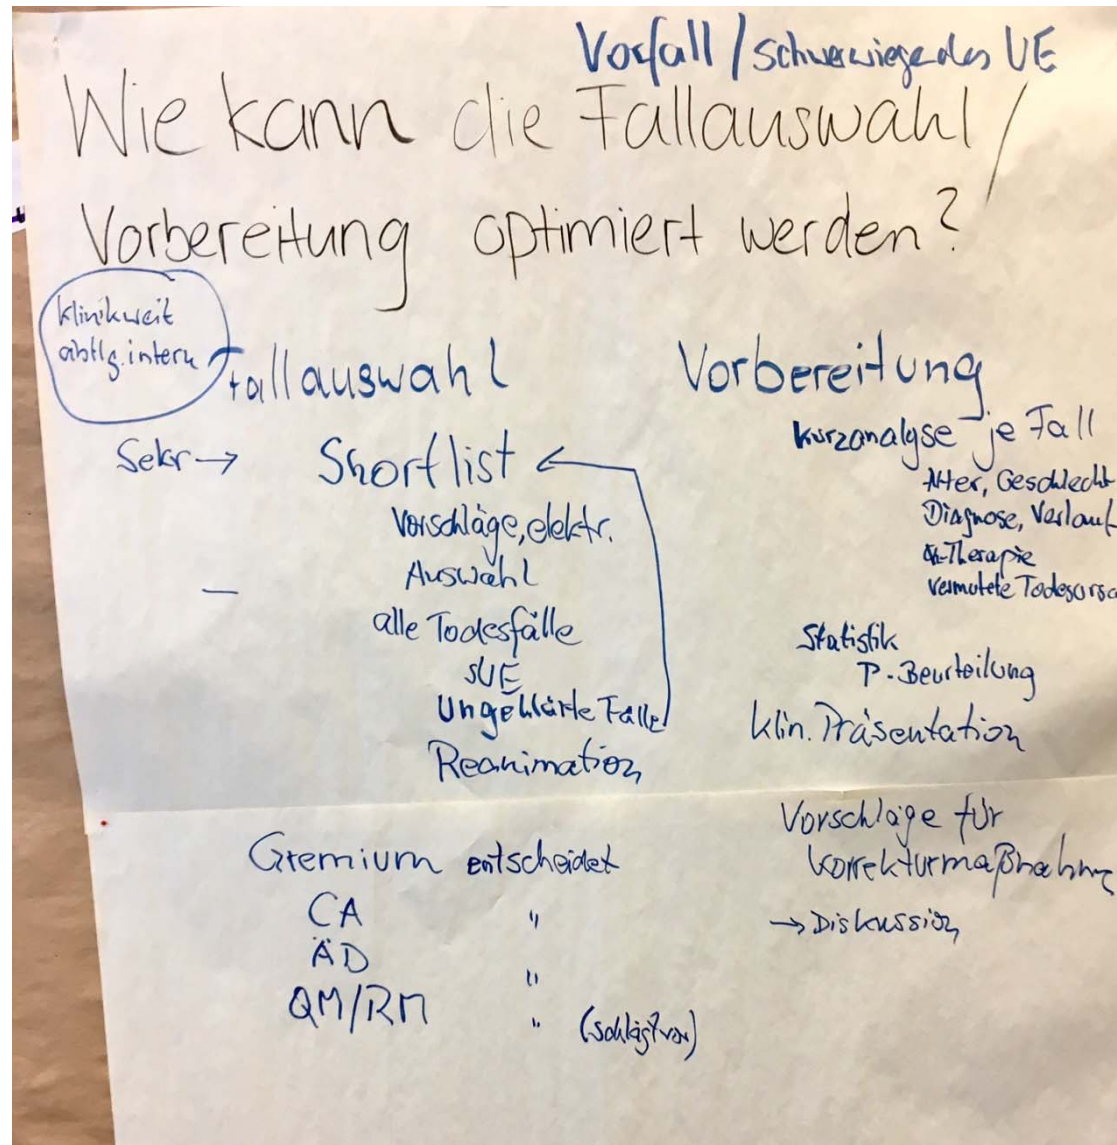 Vorfall / schwerwiegendes UE
Wie kann die Fallauswahl /
Vorbereitung optimiert werden?
klinikweit
abtlg. intern
Fallauswahl
Sekr →
Shortlist
Vorschläge, elektr.
Auswahl
—
alle Todesfälle
SUE
Ungeklärte Fälle
Reanimation
Gremium entscheidet
CA "
ÄD "
QM/RM " (schlägt vor)
Vorbereitung
Kurzanalyse je Fall
Alter, Geschlecht
Diagnose, Verlauf
Therapie
vermutete Todesursa
Statistik
P.-Beurteilung
klin. Präsentation
Vorschläge für
Korrekturmaßnahme
→ Diskussion